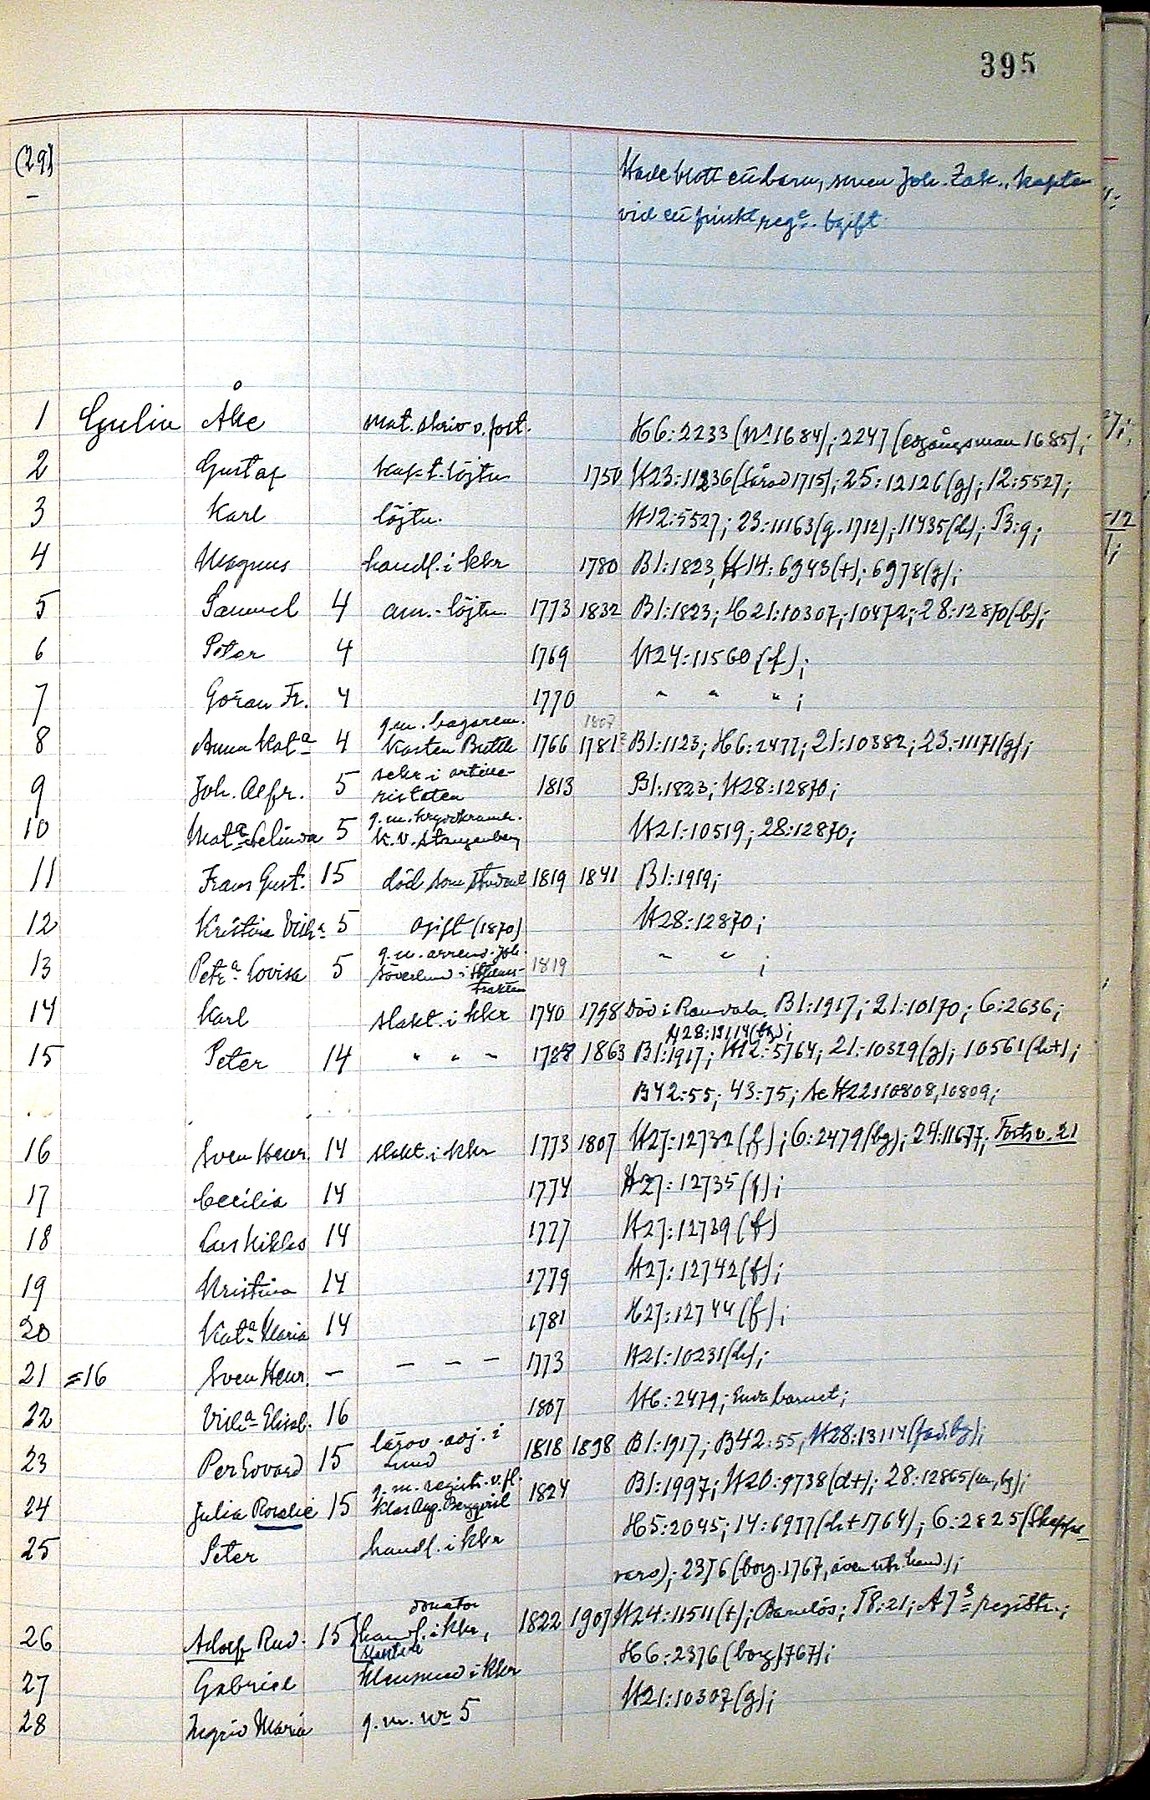 395
(29)
Hade blott en barn, sonen Joh. Zak., kapten
–
vid en finskt reg.e. Ogift
1 Gulin Åke mat. skriv. v. fort. H6:2233 (nr 1684); 2247 (edgångsman 1685);
2 Gustaf kapt.löjtn 1750 H23:11236 (lärov 1715); 25:12126 (g); 12:5527;
3 Karl löjtn. H12:5527; 23:11163 (g. 1712); 11435 (h); T3:9;
4 Magnus handl. i kkr 1780 B1:1823, H14:6943 (+); 6978 (g);
5 Samuel 4 am.-löjtn 1773 1832 B1:1823; H21:10307; 10472; 28:12870 (b);
6 Peter 4 1769 H24:11560 (f);
7 Göran Fr. 4 1770 " " " ;
8 Anna Kat.a 4 g.m. bagaren. Karsten Buttle 1766 1807 1781? B1:1123; H6:2477; 21:10382; 23:11171 (g);
9 Joh. Alfr. 5 sekr i artille-ristaten 1813 B1:1823; H28:12870;
10 Mat.a Selinda 5 g.m. kryddkramh. K.V. Stangenberg H21:10519; 28:12870;
11 Frans Gust. 15 död som student 1819 1841 B1:1919;
12 Kristina Vilh.a 5 ogift (1870) H28:12870;
13 Petr.a Lovisa 5 g.m. arrend. Joh. Söverlund i trakten 1819 " " ;
14 Karl slakt. i kkr 1740 1798 död i Ramdala. B1:1917; 21:10170; 6:2636;
H28:13114 (bg);
15 Peter 14 " " – 1787 1863 B1:1917; H12:5764; 21:10329 (g); 10561 (h+);
B42:55; 43:75; se H22:10808, 10809;
16 Sven Henr. 14 slakt. i kkr 1773 1807 H27:12732 (f); 6:2479 (bg); 24:11677; Forts v. 21
17 Cecilia 14 1774 H27:12735 (f);
18 Lars Niklas 14 1777 H27:12739 (f)
19 Kristina 14 1779 H27:12742 (f);
20 Kat.a Maria 14 1781 H27:12744 (f);
21 =16 Sven Henr. – – – – 1773 H21:10231 (h);
22 Vilh.a Elisab. 16 1807 H6:2479; enda barnet;
23 Per Edvard 15 lärov.-adj. i Lund 1818 1898 B1:1917; B42:55, H28:13114 (fad. bg);
24 Julia Rosalie 15 g.m. registr. v. fl. Klas Aug. Bergqvist 1824 B1:1997; H20:9738 (d+); 28:12865 (m, bg);
25 Peter handl. i kkr H5:2045; 14:6977 (h+1764); 6:2825 (Skeppa-
rers); 2376 (borg. 1767, även utr. hand.);
26 Adolf Rud. 15 donator handl. i kkr, 1822 1907 H24:11511 (+); Barnlös; T8:21; A73 registr.;
27 Gabriel klensmed i kkr H6:2376 (borg 1767);
28 Ingrid Maria g.m. nr 5 H21:10307 (g);